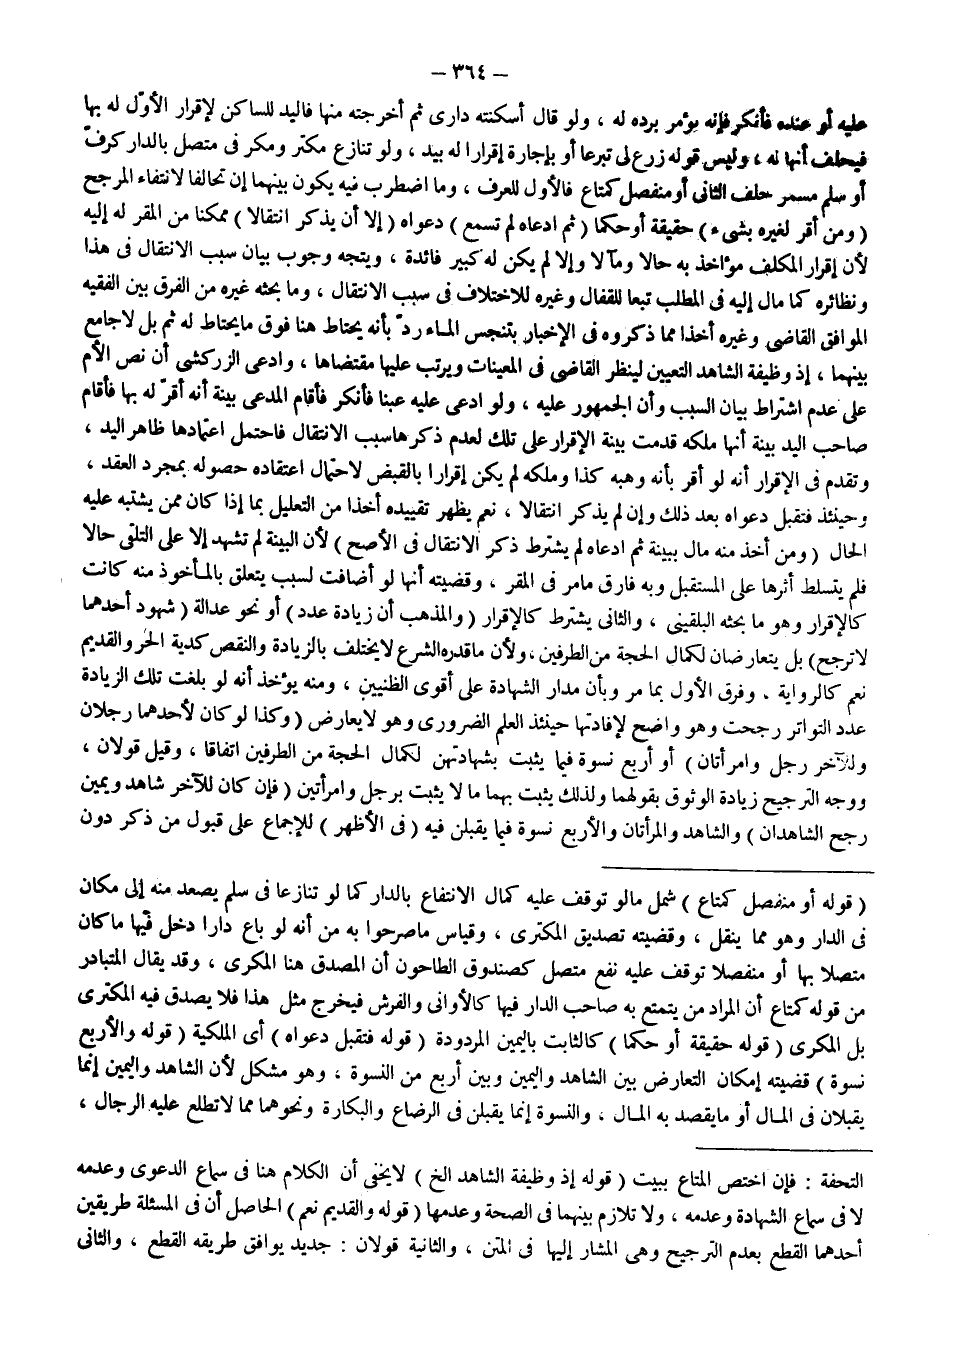 – ٣٦٤ –
عليه أو عنده فأنكر فإنه يؤمر برده له ، ولو قال أسكنته دارى ثم أخرجته منها فاليد للساكن لإقرار الأوّل له بها
فيحلف أنها له ، وليس قوله زرع لى تبرعا أو بإجارة إقرارا له بيد ، ولو تنازع مكتر ومكر فى متصل بالدار كرفّ
أو سلم مسمر حلف الثانى أو منفصل كمتاع فالأول للعرف ، وما اضطرب فيه يكون بينهما إن تحالفا لانتفاء المرجح
( ومن أقر لغيره بشىء ) حقيقة أو حكما ( ثم ادعاه لم تسمع ) دعواه ( إلا أن يذكر انتقالا ) ممكنا من المقر له إليه
لأن إقرار المكلف مؤاخذ به حالا ومآلا وإلا لم يكن له كبير فائدة ، ويتجه وجوب بيان سبب الانتقال فى هذا
ونظائره كما مال إليه فى المطلب تبعا للقفال وغيره للاختلاف فى سبب الانتقال ، وما بحثه غيره من الفرق بين الفقيه
الموافق القاضى وغيره أخذا مما ذكروه فى الإخبار بتنجس المـاء ردّ بأنه يحتاط هنا فوق مايحتاط له ثم بل لاجامع
بينهما ، إذ وظيفة الشاهد التعيين لينظر القاضى فى المعينات ويرتب عليها مقتضاها ، وادعى الزركشى أن نص الأم
على عدم اشتراط بيان السبب وأن الجمهور عليه ، ولو ادعى عليه عينا فأنكر فأقام المدعى بينة أنه أقرّ له بها فأقام
صاحب اليد بينة أنها ملكه قدمت بينة الإقرار على تلك لعدم ذكرها سبب الانتقال فاحتمل اعتمادها ظاهر اليد ،
وتقدم فى الإقرار أنه لو أقر بأنه وهبه كذا وملكه لم يكن إقرارا بالقبض لاحتمال اعتقاده حصوله بمجرد العقد ،
وحينئذ فتقبل دعواه بعد ذلك وإن لم يذكر انتقالا ، نعم يظهر تقييده أخذا من التعليل بما إذا كان ممن يشتبه عليه
الحال ( ومن أخذ منه مال ببينة ثم ادعاه لم يشترط ذكر الانتقال فى الأصح ) لأن البينة لم تشهد إلا على التلقى حالا
فلم يتسلط أثرها على المستقبل وبه فارق مامر فى المقر ، وقضيته أنها لو أضافت لسبب يتعلق بالمـأخوذ منه كانت
كالإقرار وهو ما بحثه البلقينى ، والثانى يشترط كالإقرار ( والمذهب أن زيادة عدد ) أو نحو عدالة ( شهود أحدهما
لاترجح ) بل يتعارضان لكمال الحجة من الطرفين ، ولأن ماقدره الشرع لايختلف بالزيادة والنقص كدية الحر والقديم
نعم كالرواية . وفرق الأول بما مر وبأن مدار الشهادة على أقوى الظنيين ، ومنه يؤخذ أنه لو بلغت تلك الزيادة
عدد التواتر رجحت وهو واضح لإفادتها حينئذ العلم الضرورى وهو لايعارض ( وكذا لو كان لأحدهما رجلان
وللآخر رجل وامرأتان ) أو أربع نسوة فيما يثبت بشهادتهن لكمال الحجة من الطرفين اتفاقا ، وقيل قولان ،
ووجه الترجيح زيادة الوثوق بقولهما ولذلك يثبت بهما ما لا يثبت برجل وامرأتين ( فإن كان للآخر شاهد ويمين
رجح الشاهدان ) والشاهد والمرأتان والأربع نسوة فيما يقبلن فيه ( فى الأظهر ) للإجماع على قبول من ذكر دون
( قوله أو منفصل كمتاع ) شمل مالو توقف عليه كمال الانتفاع بالدار كما لو تنازعا فى سلم يصعد منه إلى مكان
فى الدار وهو مما ينقل ، وقضيته تصديق المكترى ، وقياس ماصرحوا به من أنه لو باع دارا دخل فيها ما كان
متصلا بها أو منفصلا توقف عليه نفع متصل كصندوق الطاحون أن المصدق هنا المكرى ، وقد يقال المتبادر
من قوله كمتاع أن المراد من يتمتع به صاحب الدار فيها كالأوانى والفرش فيخرج مثل هذا فلا يصدق فيه المكترى
بل المكرى ( قوله حقيقة أو حكما ) كالثابت باليمين المردودة ( قوله فتقبل دعواه ) أى الملكية ( قوله والأربع
نسوة ) قضيته إمكان التعارض بين الشاهد واليمين وبين أربع من النسوة ، وهو مشكل لأن الشاهد واليمين إنما
يقبلان فى المـال أو مايقصد به المـال ، والنسوة إنما يقبلن فى الرضاع والبكارة ونحوهما مما لاتطلع عليه الرجال ،
التحفة : فإن اختص المتاع ببيت ( قوله إذ وظيفة الشاهد الخ ) لايخفى أن الكلام هنا فى سماع الدعوى وعدمه
لا فى سماع الشهادة وعدمه ، ولا تلازم بينهما فى الصحة وعدمها ( قوله والقديم نعم ) الحاصل أن فى المسئلة طريقين
أحدهما القطع بعدم الترجيح وهى المشار إليها فى المتن ، والثانية قولان : جديد يوافق طريقه القطع ، والثانى